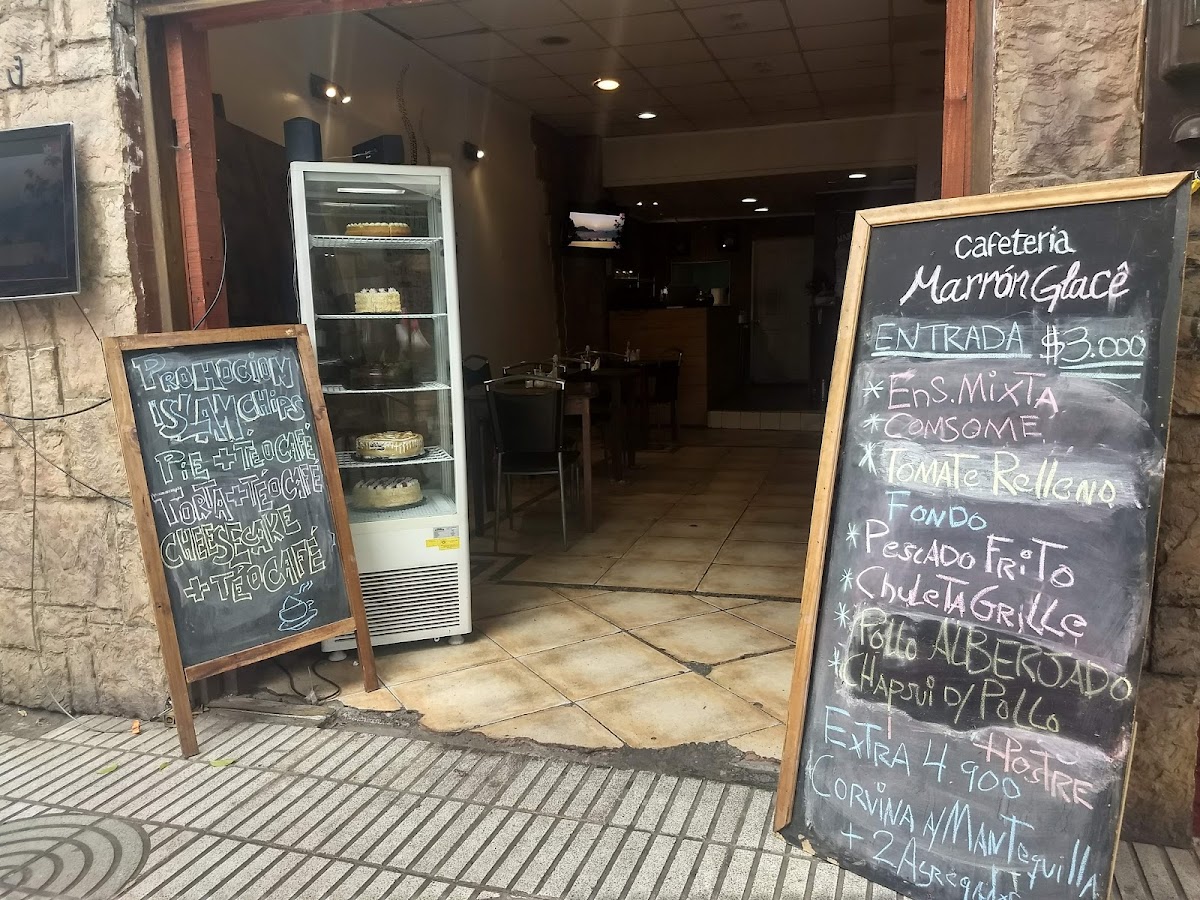 PROMOCION
ISLAM CHIPS
PIE + TÉ O CAFÉ
TORTA + TÉ O CAFÉ
CHEESECAKE
+ TÉ O CAFÉ
Cafetería
Marrón Glacê
ENTRADA $3.000
* Ens. Mixta
* CONSOME
* Tomate Relleno
FONDO
* Pescado Frito
* Chuleta Grille
* Pollo ALBERJADO
* Chapsui d/Pollo
+ Postre
Extra 4.900
Corvina a/Mantequilla
+ 2 Agregados